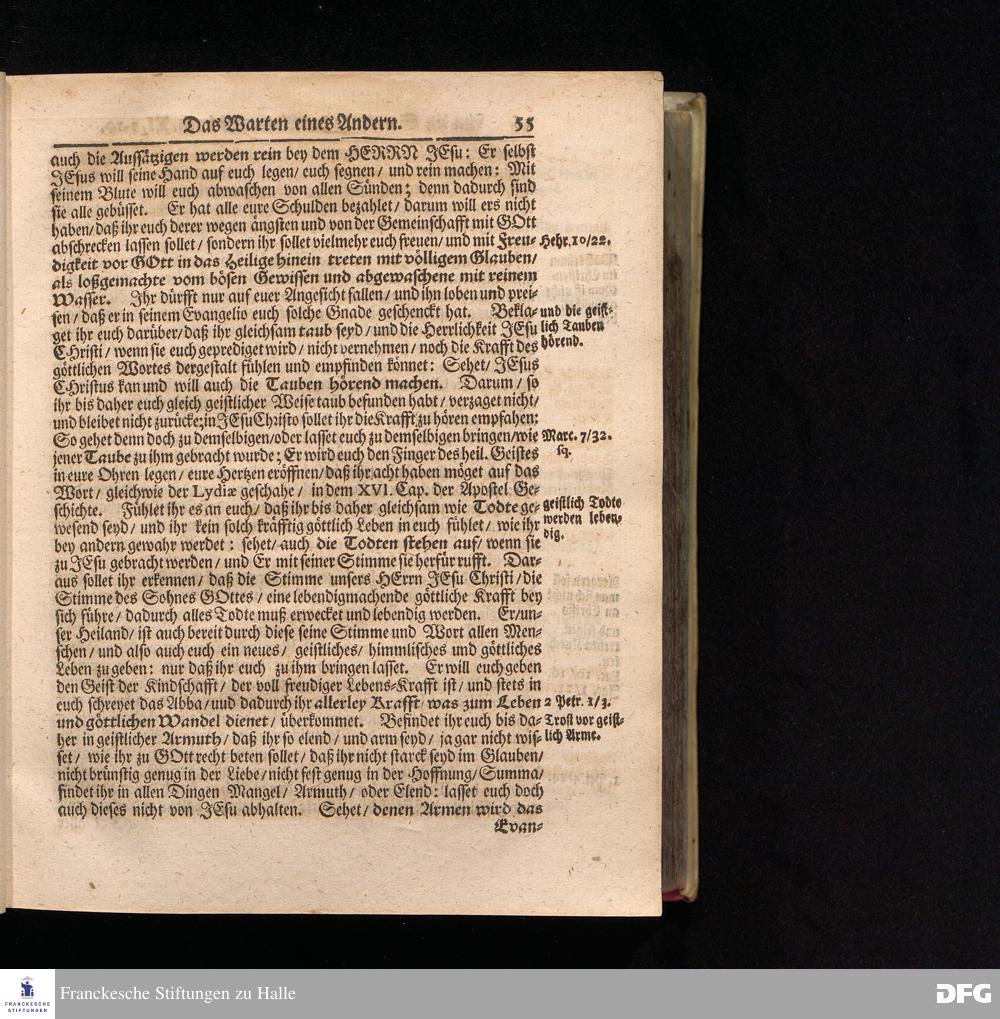 Das Warten eines Andern. 55
auch die Aussätzigen werden rein bey dem HERRN JEsu: Er selbst
JEsus will seine Hand auf euch legen/ euch segnen/ und rein machen: Mit
seinem Blute will euch abwaschen von allen Sünden; denn dadurch sind
sie alle gebüsset. Er hat alle eure Schulden bezahlet/ darum will ers nicht
haben/ daß ihr euch derer wegen ängsten und von der Gemeinschafft mit GOtt
abschrecken lassen sollet/ sondern ihr sollet vielmehr euch freuen/ und mit Freu-
digkeit vor GOtt in das Heilige hinein treten mit völligem Glauben/
als loßgemachte vom bösen Gewissen und abgewaschene mit reinem
Wasser. Ihr dürfft nur auf euer Angesicht fallen/ und ihn loben und prei-
sen/ daß er in seinem Evangelio euch solche Gnade geschenckt hat. Bekla-
get ihr euch darüber/ daß ihr gleichsam taub seyd/ und die Herrlichkeit JEsu
CHristi/ wenn sie euch geprediget wird/ nicht vernehmen/ noch die Krafft des
göttlichen Wortes dergestalt fühlen und empfinden könnet: Sehet/ JEsus
CHristus kan und will auch die Tauben hörend machen. Darum/ so
ihr bis daher euch gleich geistlicher Weise taub befunden habt/ verzaget nicht/
und bleibet nicht zurücke; in JEsu Christo sollet ihr die Krafft zu hören empfahen:
So gehet denn doch zu demselbigen/ oder lasset euch zu demselbigen bringen/ wie
jener Taube zu ihm gebracht wurde; Er wird euch den Finger des heil. Geistes
in eure Ohren legen/ eure Hertzen eröffnen/ daß ihr acht haben möget auf das
Wort/ gleichwie der Lydiæ geschahe/ in dem XVI. Cap. der Apostel Ge-
schichte. Fühlet ihr es an euch/ daß ihr bis daher gleichsam wie Todte ge-
wesend seyd/ und ihr kein solch kräfftig göttlich Leben in euch fühlet/ wie ihr
bey andern gewahr werdet: sehet/ auch die Todten stehen auf/ wenn sie
zu JEsu gebracht werden/ und Er mit seiner Stimme sie herfür rufft. Dar-
aus sollet ihr erkennen/ daß die Stimme unsers HErrn JEsu Christi/ die
Stimme des Sohnes GOttes/ eine lebendigmachende göttliche Krafft bey
sich führe/ dadurch alles Todte muß erwecket und lebendig werden. Er/ un-
ser Heiland/ ist auch bereit durch diese seine Stimme und Wort allen Men-
schen/ und also auch euch ein neues/ geistliches/ himmlisches und göttliches
Leben zu geben: nur daß ihr euch zu ihm bringen lasset. Er will euch geben
den Geist der Kindschafft/ der voll freudiger Lebens-Krafft ist/ und stets in
euch schreyet das Abba/ und dadurch ihr allerley Krafft/ was zum Leben
und göttlichen Wandel dienet/ überkommet. Befindet ihr euch bis da-
her in geistlicher Armuth/ daß ihr so elend/ und arm seyd/ ja gar nicht wis-
set/ wie ihr zu GOtt recht beten sollet/ daß ihr nicht starck seyd im Glauben/
nicht brünstig genug in der Liebe/ nicht fest genug in der Hoffnung/ Summa/
findet ihr in allen Dingen Mangel/ Armuth/ oder Elend: lasset euch doch
auch dieses nicht von JEsu abhalten. Sehet/ denen Armen wird das
Evan-
Hebr. 10/22.
und die geist-
lich Tauben
hörend.
Marc. 7/32.
sq.
geistlich Todte
werden leben-
dig.
2 Petr. 1/3.
Trost vor geist-
lich Arme.
FRANCKESCHE
STIFTUNGEN
Franckesche Stiftungen zu Halle
DFG